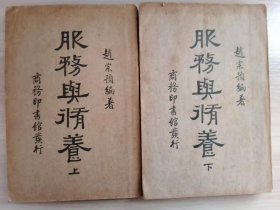 趙宗預編著
服務與脩養 上
商務印書館發行
趙宗預編著
服務與脩養 下
商務印書館發行